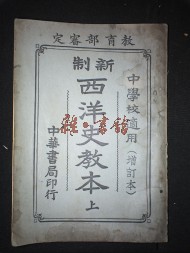 教育部審定
中學校適用(增訂本)
新制
西洋史教本 上
中華書局印行